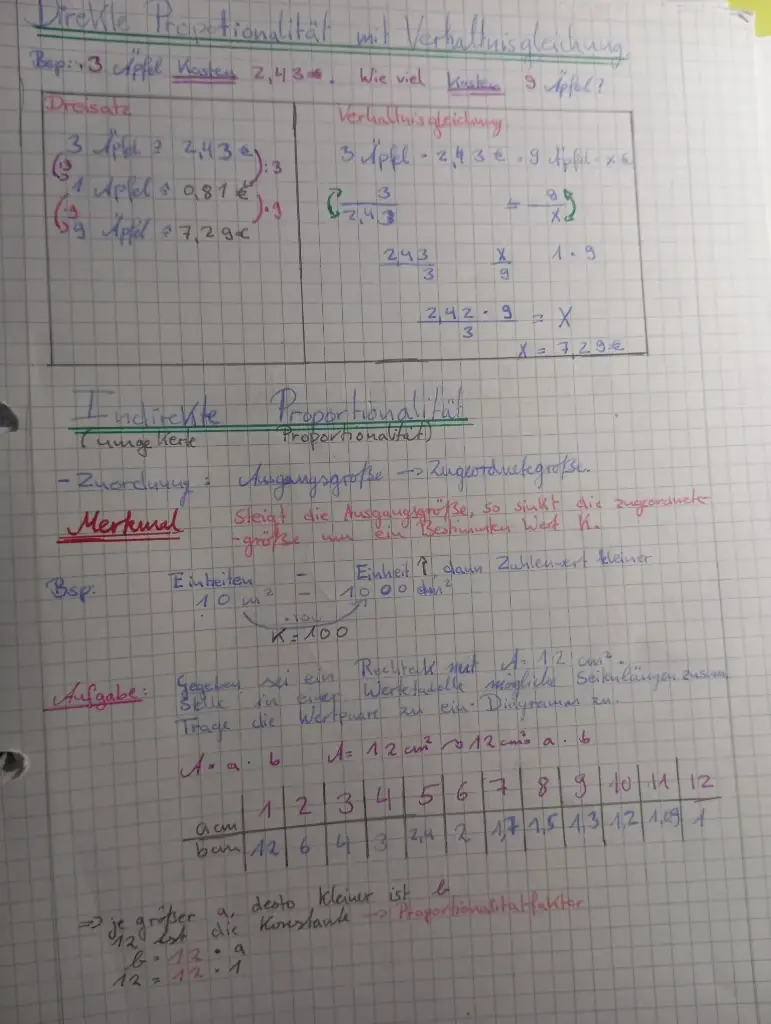 Direkte Propotionalität mit Verhältnisgleichung
Bsp: 3 Äpfel kosten 2,43€. Wie viel kosten 9 Äpfel?
Dreisatz
3 Äpfel ≙ 2,43€
:3 :3
1 Äpfel ≙ 0,81€
·9 ·9
9 Äpfel ≙ 7,29€
Verhältnisgleichung
3 Äpfel - 2,43€ · 9 Äpfel - x€
3/2,43 = 9/x
2,43/3 x/9 1·9
2,42 · 9/3 = X
X = 7,29€
Indirekte Proportionalität
(umgekerte Proportionalität)
- Zuordnung: Ausgangsgröße → Zugeordnetegröße.
Merkmal Steigt die Ausgangsgröße, so sinkt die zugeordnete
-größe um ein Bestimmten Wert K.
Bsp: Einheiten - Einheit ↑, dann Zahlenwert kleiner
10 m² - 1000 dm²
·100
K = 100
Aufgabe: Gegeben sei ein Rechteck mit A = 12 cm².
Stelle in einer Wertetabelle mögliche Seitenlängen zusam
Trage die Wertpaare zu ein Diagramm zu.
A = a · b A = 12 cm² 12 cm² = a · b
a cm 1 2 3 4 5 6 7 8 9 10 11 12
b cm 12 6 4 3 2,4 2 1,7 1,5 1,3 1,2 1,09 1
⇒ je größer a, desto kleiner ist b
12 ist die Konstante → Proportionalitätfaktor
b = 12 · a
12 = 12 · 1